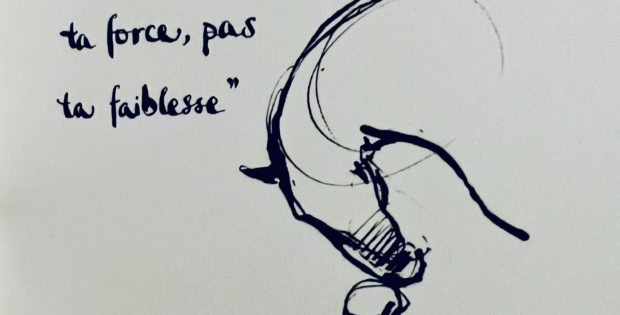 ta force, pas
ta faiblesse”